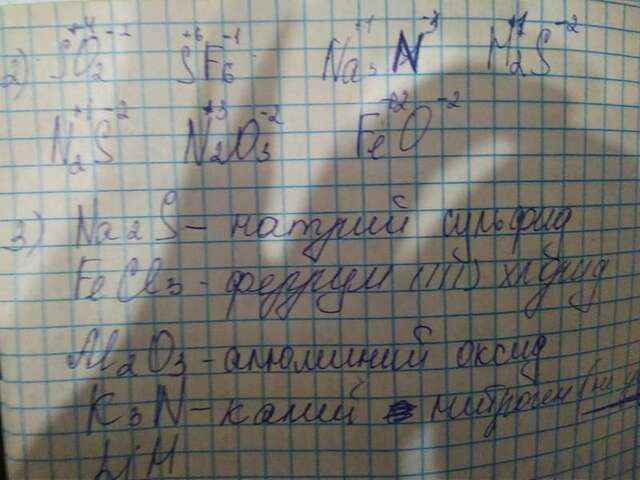 2) S⁺⁴O₂⁻² S⁺⁶F₆⁻¹ Na₃⁺¹N⁻³ H₂⁺¹S⁻²
N₂⁺¹S⁻² N₂⁺³O₃⁻² Fe⁺²O⁻²
3) Na₂S - натрий сульфид
FeCl₃ - феррум (III) хлорид
Al₂O₃ - алюминий оксид
K₃N - калий нитроген
LiH